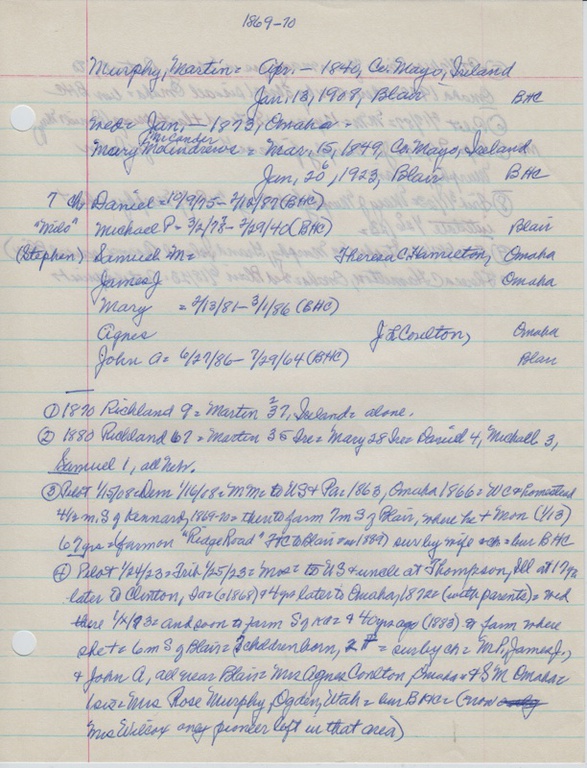 1869-70
Murphy, Martin = Apr. - 1840, Co. Mayo, Ireland
Jan, 13, 1908, Blair BHC
wed = Jan, - 1873, Omaha =
McCander
Mary = Mar, 15, 1849, Co, Mayo, Ireland
Jan, 20, 1923, Blair BHC
7 ch = Daniel = 12/9/75 - 2/12/87 (BHC)
"Milo" Michael P = 3/2/78 - 2/29/40 (BHC) Blair
(Stephen) Samuel M = Theresa C. Hamilton, Omaha
James J. Omaha
Mary = 2/13/81 - 3/1/86 (BHC)
Agnes J L Coulton, Omaha
John A = 6/27/86 - 7/29/64 (BHC) Blair
① 1870 Richland 9 = Martin 37, Ireland = alone.
② 1880 Richland 67 = Martin 35 Ire = Mary 28 Ire = Daniel 4, Michael 3,
Samuel 1, all Nebr.
③ Pilot 1/15/08 = Dem 1/16/08 = MM = to US & Pa = 1863, Omaha 1866 = WC & homestead
4½ m. S of Kennard, 1869-70 = then to farm 7m S of Blair, where he + Mon (1/13)
67 yrs = farm on "Ridge Road" = sur by wife & ch = bur BHC
④ Pilot 1/24/23 = Trib 1/25/23 = Mrs = to US & uncle at Thompson, Ill at 17 =
later to Clinton, Ia = (c1868) & 4 yrs later to Omaha, 1872 = (with parents) = wed
there 1/2/73 = and soon to farm S of & 40 yrs ago (1883) to farm where
she + = 6m S of Blair = 7 children born, = sur by ch = M P, James J.,
& John A, all near Blair = Mrs Agnes Coulton, Omaha = & S M Omaha =
1 sis = Mrs Rose Murphy, Ogden, Utah = bur BHC = (now only
Mrs Wilcox only pioneer left in that area)